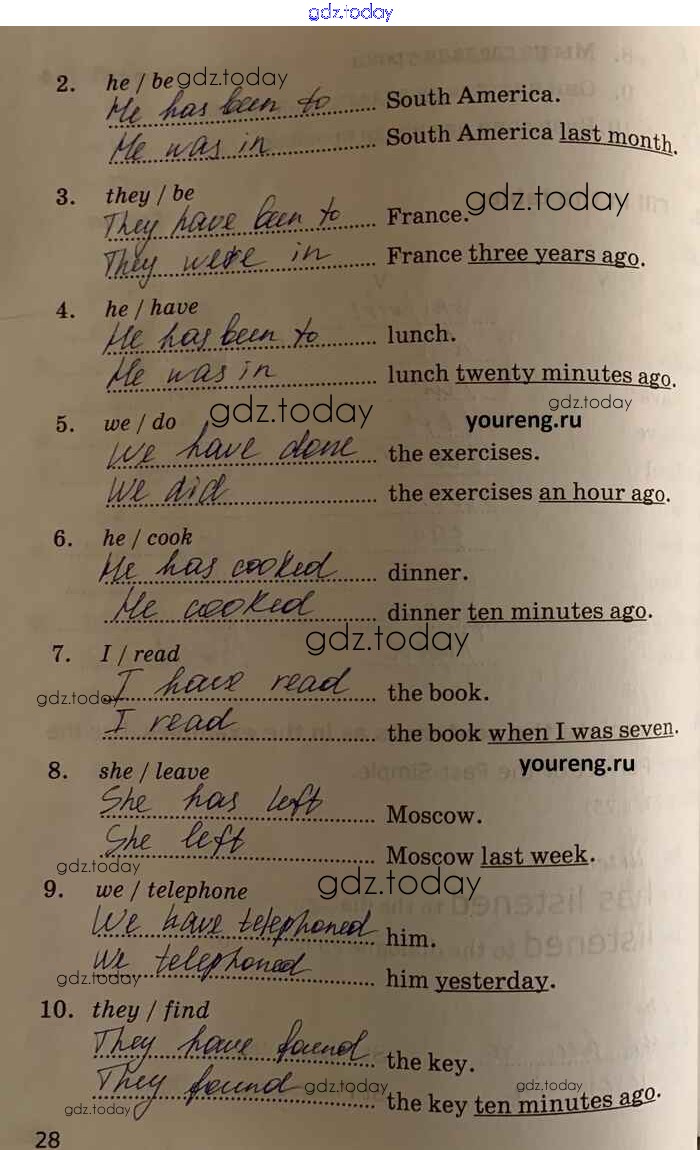 gdz.today
2. he / be gdz.today
He has been to South America.
He was in South America last month.
3. they / be gdz.today
They have been to France.
They were in France three years ago.
4. he / have
He has been to lunch.
He was in lunch twenty minutes ago.
gdz.today
5. we / do gdz.today youreng.ru
We have done the exercises.
We did the exercises an hour ago.
6. he / cook
He has cooked dinner.
He cooked dinner ten minutes ago.
gdz.today
7. I / read
gdz.today I have read the book.
I read the book when I was seven.
8. she / leave youreng.ru
She has left Moscow.
She left Moscow last week.
gdz.today
9. we / telephone gdz.today
We have telephoned him.
We telephoned him yesterday.
gdz.today
10. they / find
They have found the key.
They found the key ten minutes ago.
gdz.today gdz.today gdz.today
28